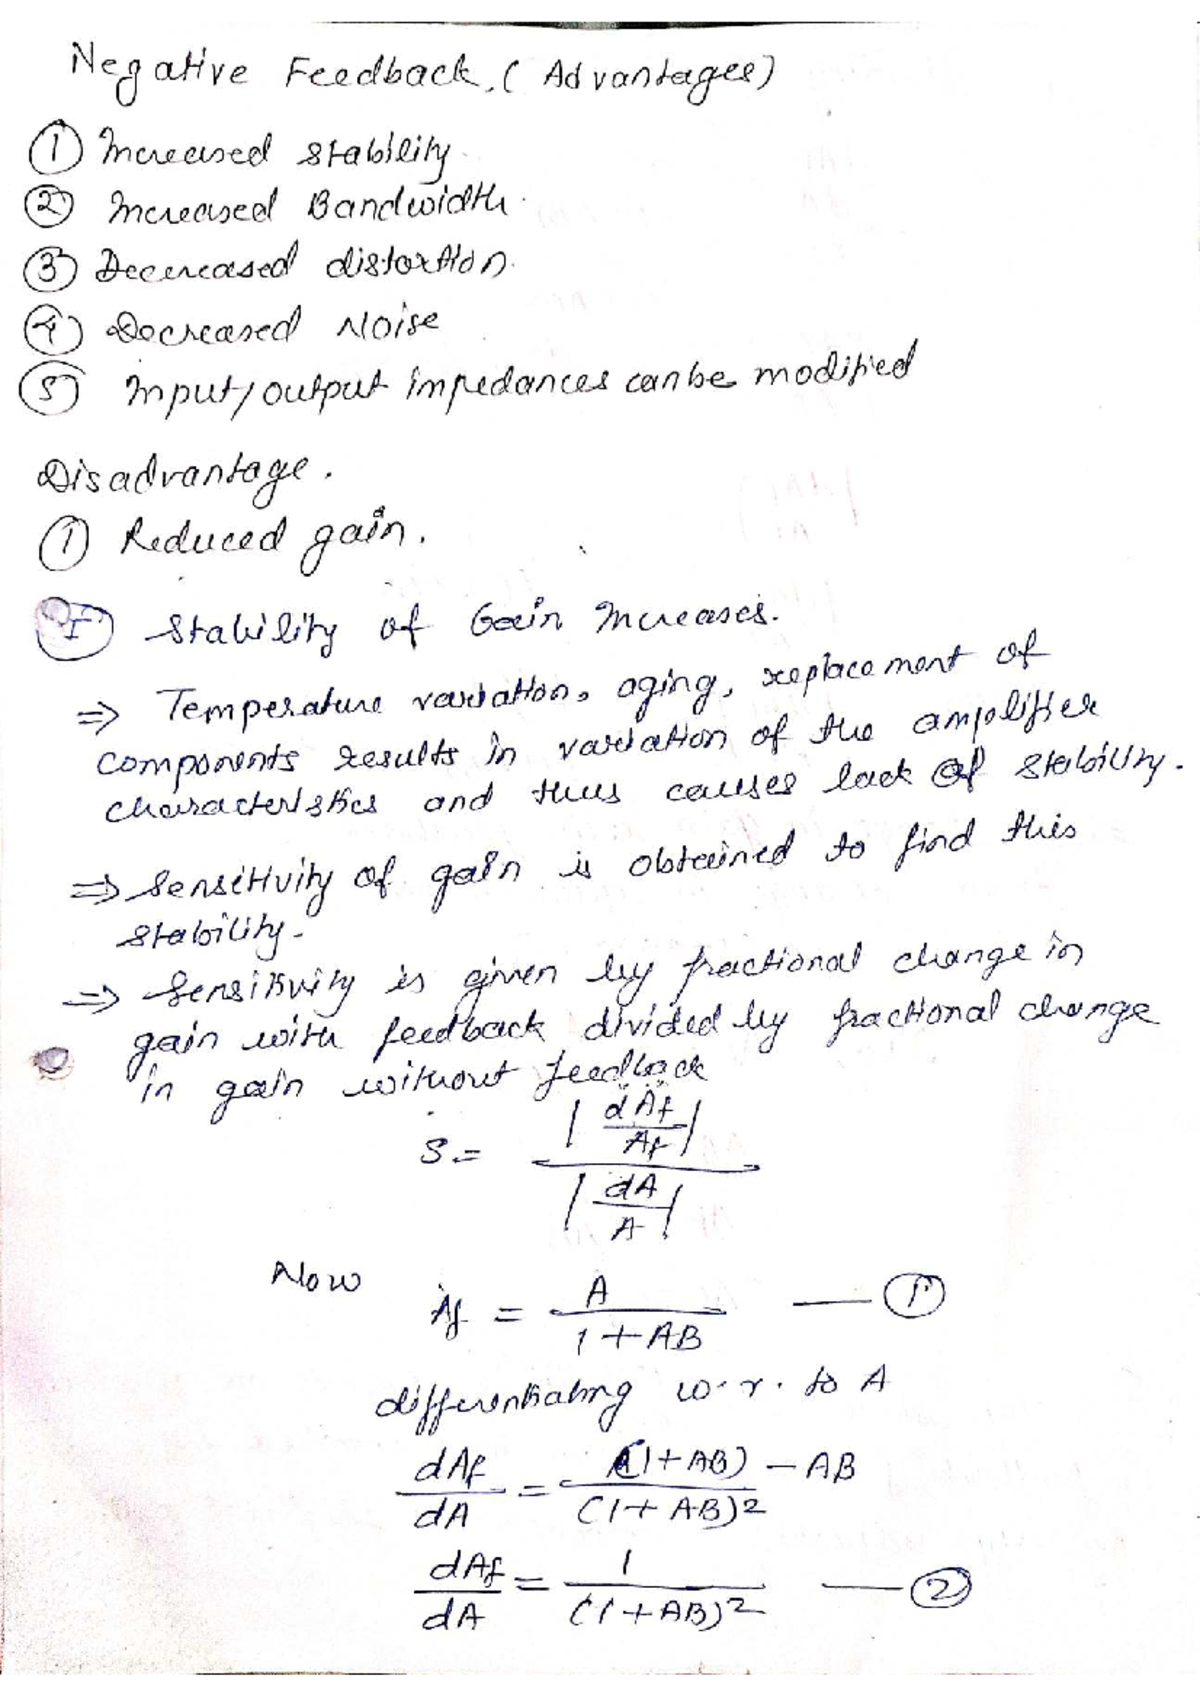 Negative Feedback. (Advantages)
① Increased stability
② Increased Bandwidth.
③ Decereased distortion.
④ Decreased Noise
⑤ Input/output impedances can be modified
Disadvantage.
① Reduced gain.
I Stability of Gain Increases.
⇒ Temperature variation, aging, replacement of
components results in variation of the amplifier
characteristics and thus causes lack of stability.
⇒ Sensitivity of gain is obtained to find this
stability.
⇒ Sensitivity is given by fractional change in
gain with feedback divided by fractional change
in gain without feedback
S = |dAf/Af| / |dA/A|
Now Af = A/(1+AB) — ①
differentiating w.r. to A
dAf/dA = (1+AB) - AB / (1+AB)2
dAf/dA = 1/(1+AB)2 — ②